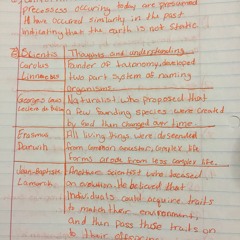 processes occuring today are presumed
to have occured similarly in the past
indicating that the earth is not static.
Scientist Thoughts and understanding
Carolus founder of taxonomy, developed
Linnaeus two part system of naming
organisms.
Georges Louis Naturalist who proposed that
Leclerc de a few founding species were created
by God then changed over time.
Erasmus All living things were descended
Darwin from common ancestor, complex life
forms arose from less complex life.
Jean-Baptiste Another scientist who focused
Lamarck on evolution. He believed that
individuals could acquire traits
to match their environment,
and then pass these traits on
to their offspring